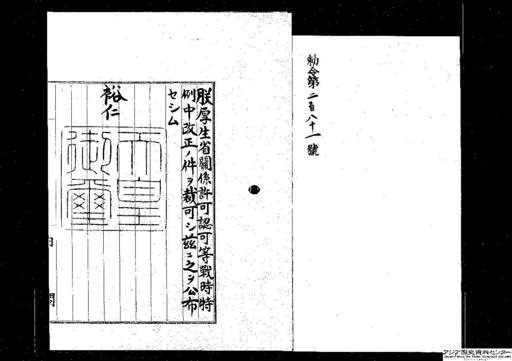 勅令第二百八十一號
朕厚生省關係許可認可等戰時特
例中改正ノ件ヲ裁可シ茲ニ之ヲ公布
セシム
裕仁
天皇
御璽
アジア歴史資料センター
Japan Center for Asian Historical Records